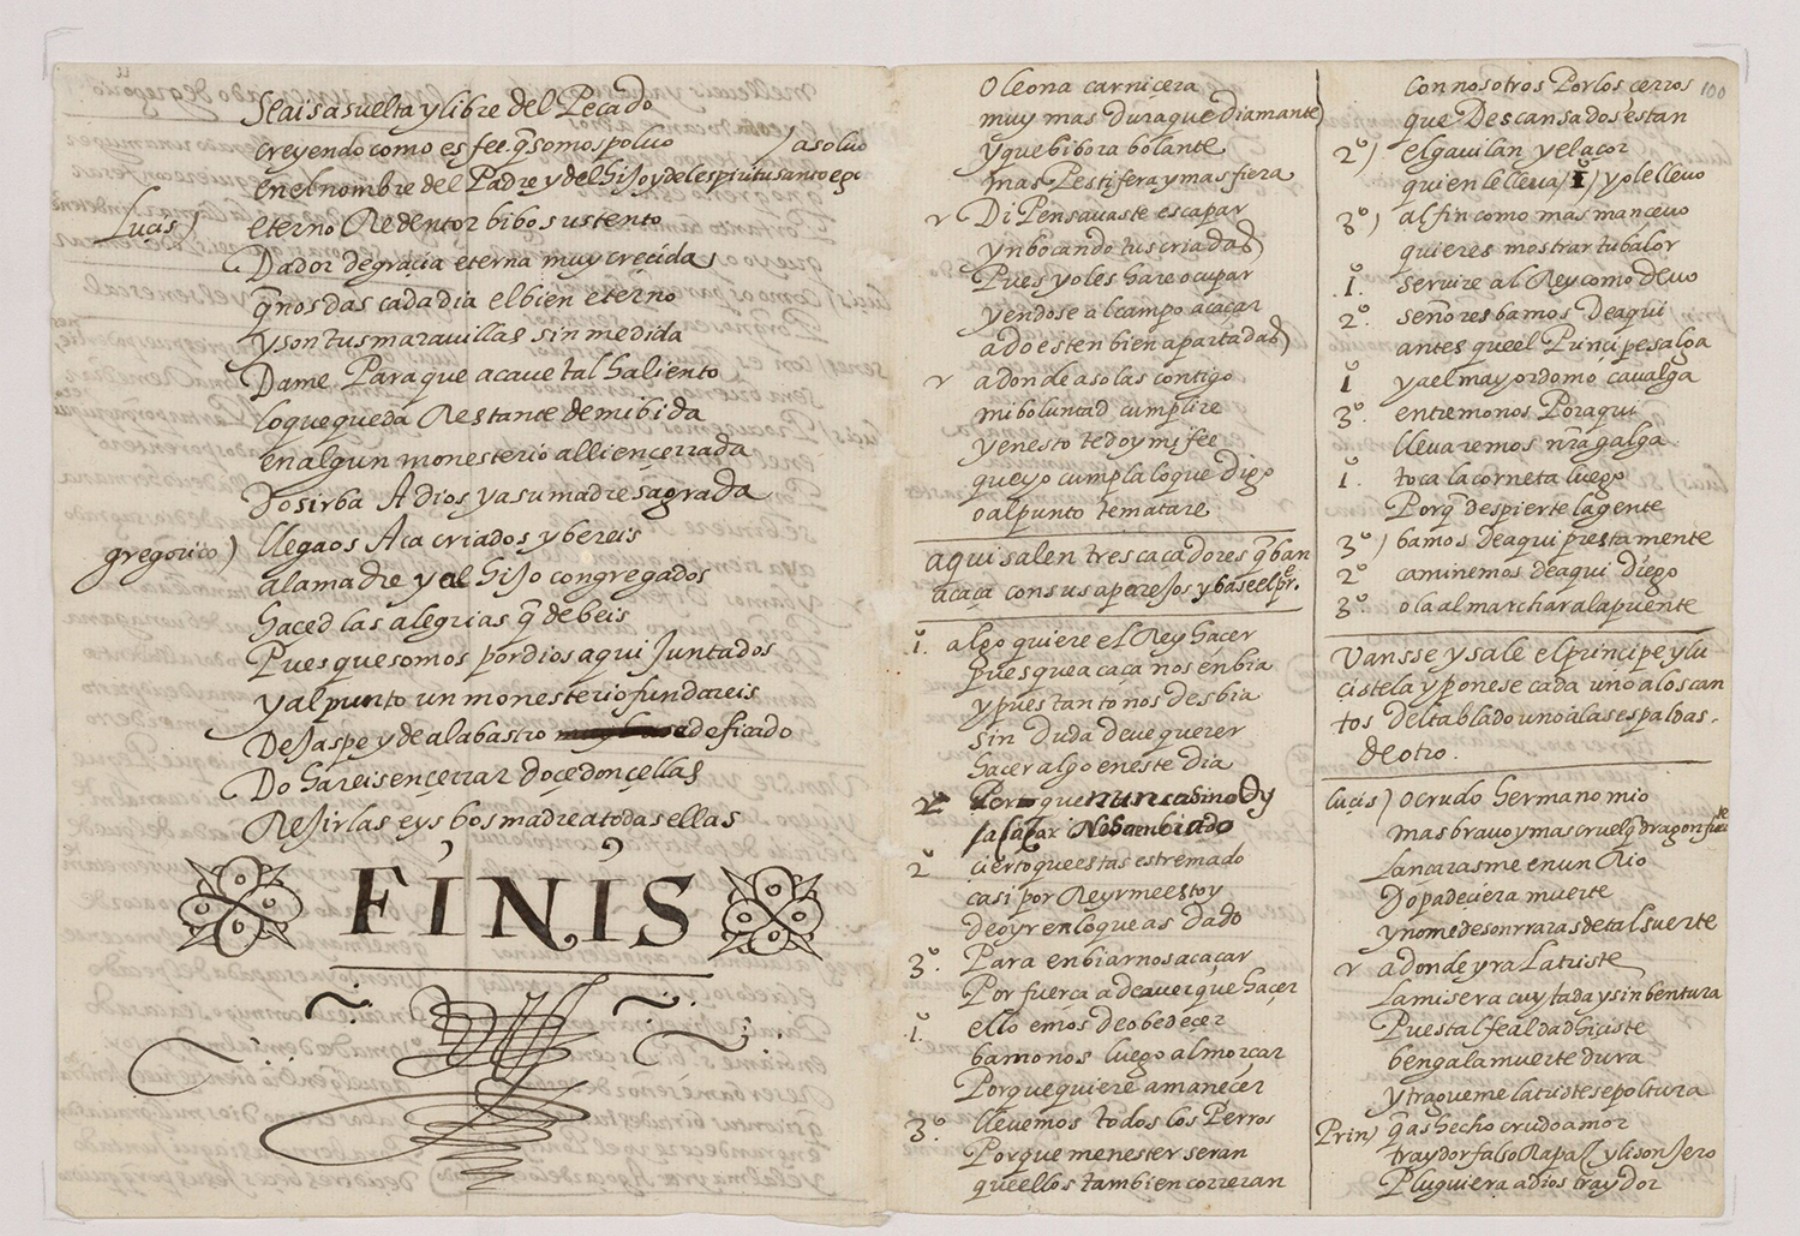 Seais asuelta y libre del Pecado
creyendo como es fee. q̃ somos poluo / asoluo
en el nombre del Padre y del hijo y del espiritu santo ego
Luçis) eterno Redentor bibo sustento
Dador de graçia eterna muy creçida
q̃ nos das cada dia el bien eterno
y son tus marauillas sin medida
Dame Para que acaue tal haliento
lo que queda Restante de mi bida
en algun monesterio alli ençerrada
Do sirba A dios y a su madre sagrada
gregorico) llegaos Aca criados y bereis
a la madre y al hijo congregados
haced las alegrias q̃ debeis
Pues que somos por dios aqui Juntados
y al punto un monesterio fundareis
De Jaspe y de alabastro edeficado
Do hareis ençerrar doçe donçellas
Rejirlas eys bos madre a todas ellas
FINIS
O leona carniçera
muy mas dura que Diamante)
y que bibora bolante
mas Pestifera y mas fiera
r Di Pensauaste escapar
ynbocando tus criadas)
Pues yo les hare ocupar
yendose al campo a caçar
a do esten bien apartadas)
r a donde a solas contigo
mi boluntad cumplire
y en esto te doy mi fee
que yo cumpla lo que digo
o al punto te matare
aqui salen tres caçadores q̃ ban
a caça con sus aperejos y base el pre.
1º. algo quiere el Rey haçer
pues que a caça nos enbia
y pues tanto nos desbia
sin duda deue querer
haçer algo en este dia
2º çierto que estas estremado
casi por Reyrme estoy
de oyr en lo que as dado
3º. Para enbiarnos a caçar
Por fuerça a de auer que haçer
1º. ello emos de obedeçer
bamonos luego almorçar
Porque quiere amaneçer
3º. lleuemos todos los Perros
Porque menester seran
que ellos tambien correran
100
con nosotros Por los çerros
que Descansados estan
2º) el gauilan y el açor
quien le lleua) 1º) yo le lleuo
3º) al fin como mas manceuo
quieres mostrar tu balor
1º. seruire al Rey como deuo
2º. señores bamos de aqui
antes que el Prinçipe salga
1º ya el mayordomo caualga
3º. entremonos Por aqui
lleuaremos nr̃a galga
1º. toca la corneta luego
Porq̃ despierte la gente
3º) bamos de aqui prestamente
2º caminemos de aqui digo
3º. ola al marchar a la puente
Vansse y sale el prinçipe y lu
çistela y ponese cada uno a los can
tos del tablado uno a las espaldas
de otro.
luçis) o crudo hermano mio
mas brauo y mas cruel q̃ dragon fuerte
Lançarasme en un Rio
Do padeçiera muerte
y no me desonrraras de tal suerte
r a donde yra La triste
La misera cuytada y sin bentura
Pues tal fealdad hiçiste
benga la muerte dura
y tragueme la triste sepoltura
Prin) q̃ as hecho crudo amor
traydor falso Rapaz y lisonjero
Pluguiera a dios traydor